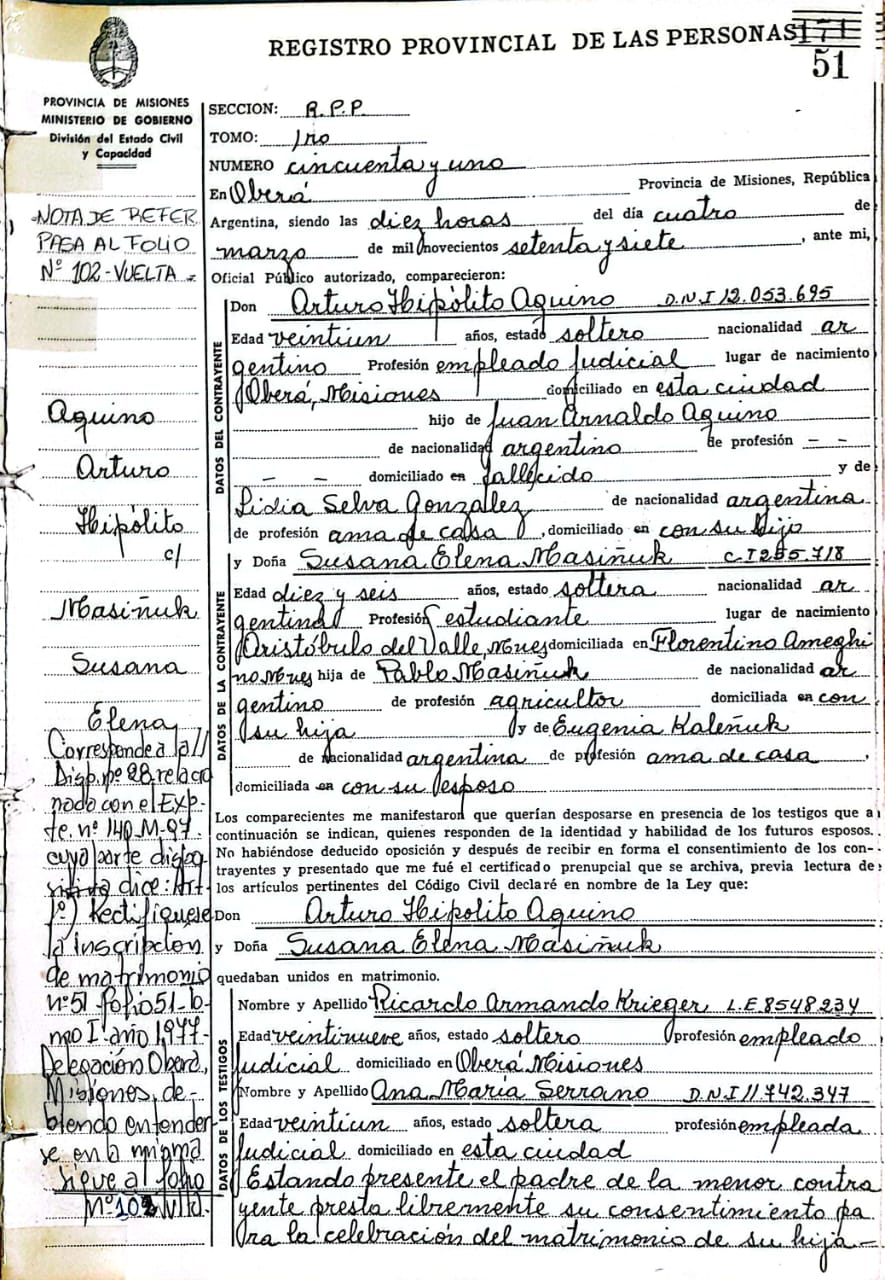 REGISTRO PROVINCIAL DE LAS PERSONAS 171
51
PROVINCIA DE MISIONES
MINISTERIO DE GOBIERNO
División del Estado Civil
y Capacidad
NOTA DE REFER
PASA AL FOLIO
Nº 102-VUELTA -
Aquino
Arturo
Hipólito
c/
Masiñuk
Susana
Elena
Corresponde a la//
Disp. nº 28, relacio
nado con el Exp-
te. nº 140 M-97
cuya parte dispo
sitiva dice: Art.
1º) Rectifíquese
la inscripción
de matrimonio
nº 51 folio 51 to-
mo I año 1977-
Delegación Oberá,
Misiones, de-
biendo entender
se en la misma
Sigue a folio
Nº 102 Vlta.
SECCION: R.P.P.
TOMO: 1ro
NUMERO cincuenta y uno
En Oberá Provincia de Misiones, República
Argentina, siendo las diez horas del día cuatro de
marzo de mil novecientos setenta y siete, ante mi,
Oficial Público autorizado, comparecieron:
DATOS DEL CONTRAYENTE
Don Arturo Hipólito Aquino D.N.I 12.053.695
Edad veintiun años, estado soltero nacionalidad ar
gentino Profesión empleado judicial lugar de nacimiento
Oberá, Misiones domiciliado en esta ciudad
hijo de Juan Arnaldo Aquino
de nacionalidad argentino de profesión - -
- - domiciliado en fallecido y de
Lidia Selva Gonzalez de nacionalidad argentina
de profesión ama de casa, domiciliado en con su hijo
DATOS DE LA CONTRAYENTE
y Doña Susana Elena Masiñuk C.I 255.718
Edad diez y seis años, estado soltera nacionalidad ar
gentina Profesión estudiante lugar de nacimiento
Aristóbulo del Valle, Mnes domiciliada en Florentino Ameghi
no Mnes hija de Pablo Masiñuk de nacionalidad ar
gentino de profesión agricultor domiciliada en con
su hija y de Eugenia Kaleñuk
de nacionalidad argentina de profesión ama de casa,
domiciliada en con su esposo
Los comparecientes me manifestaron que querían desposarse en presencia de los testigos que a
continuación se indican, quienes responden de la identidad y habilidad de los futuros esposos.
No habiéndose deducido oposición y después de recibir en forma el consentimiento de los con-
trayentes y presentado que me fué el certificado prenupcial que se archiva, previa lectura de
los artículos pertinentes del Código Civil declaré en nombre de la Ley que:
Don Arturo Hipólito Aquino
y Doña Susana Elena Masiñuk
quedaban unidos en matrimonio.
DATOS DE LOS TESTIGOS
Nombre y Apellido Ricardo Armando Krieger L.E 8548234
Edad veintinueve años, estado soltero profesión empleado
judicial domiciliado en Oberá Misiones
Nombre y Apellido Ana María Serrano D.N.I 11.742.347
Edad veintiun años, estado soltera profesión empleada
judicial domiciliado en esta ciudad
Estando presente el padre de la menor contra
yente presta libremente su consentimiento pa
ra la celebración del matrimonio de su hija-